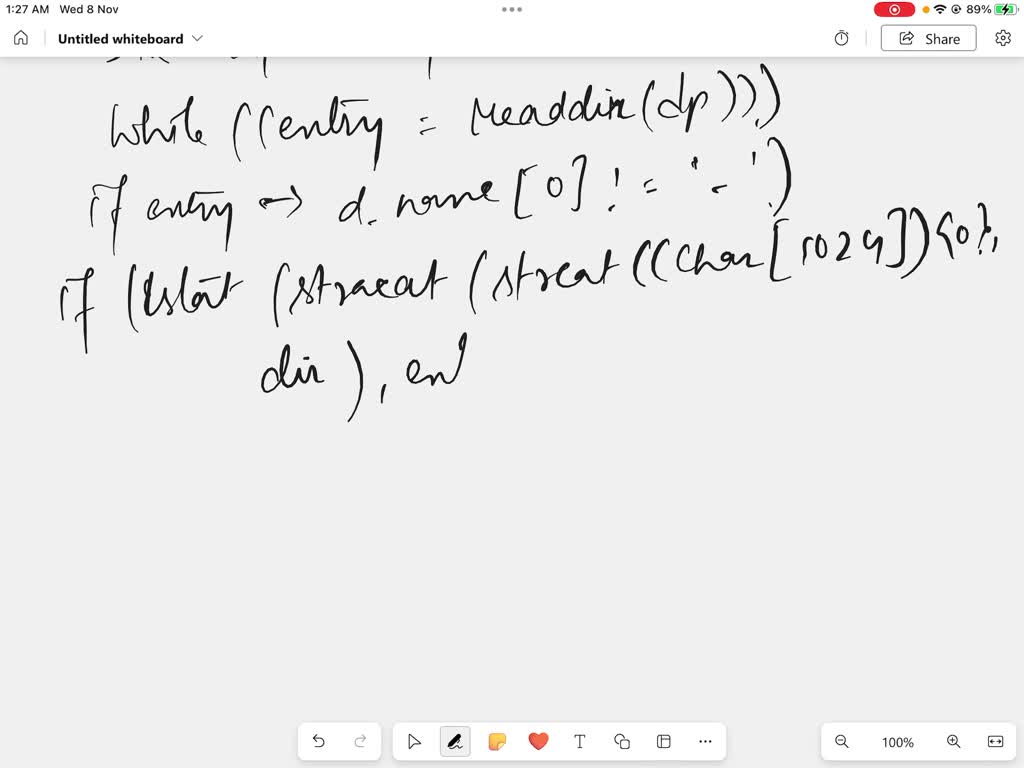 1:27 AM Wed 8 Nov 89%
Untitled whiteboard Share
while ((entry = readdir(dp)))
if entry → d. name [0] != '.')
if (lstat (stracat (strcat ((char [1024]) {0},
dir), ent
100%